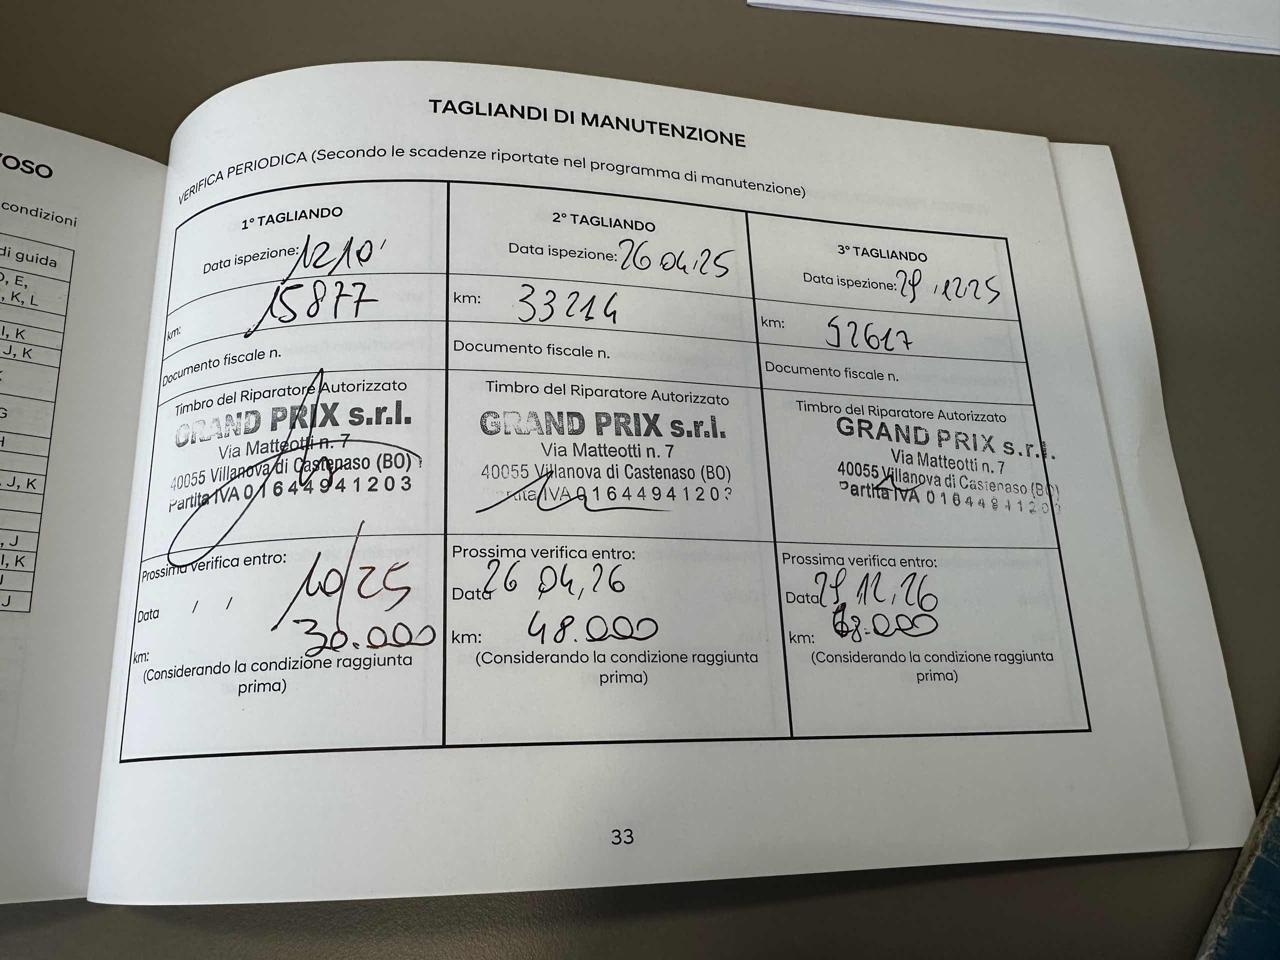 VOSO
condizioni
di guida
D, E,
, K, L
I, K
J, K
G
H
, J, K
, J
I, K
J
J
TAGLIANDI DI MANUTENZIONE
VERIFICA PERIODICA (Secondo le scadenze riportate nel programma di manutenzione)
1° TAGLIANDO
Data ispezione: 12 10
km: 15877
Documento fiscale n.
Timbro del Riparatore Autorizzato
GRAND PRIX s.r.l.
Via Matteotti n. 7
40055 Villanova di Castenaso (BO)
Partita IVA 01644941203
Prossima verifica entro:
Data / / 10/25
km: 30.000
(Considerando la condizione raggiunta
prima)
2° TAGLIANDO
Data ispezione: 26 04,25
km: 33214
Documento fiscale n.
Timbro del Riparatore Autorizzato
GRAND PRIX s.r.l.
Via Matteotti n. 7
40055 Villanova di Castenaso (BO)
Partita IVA 01644941203
Prossima verifica entro:
Data 26 04,26
km: 48.000
(Considerando la condizione raggiunta
prima)
3° TAGLIANDO
Data ispezione: 29,1225
km: 52617
Documento fiscale n.
Timbro del Riparatore Autorizzato
GRAND PRIX s.r.l.
Via Matteotti n. 7
40055 Villanova di Castenaso (BO)
Partita IVA 01644941203
Prossima verifica entro:
Data 29 12,26
km: 68.000
(Considerando la condizione raggiunta
prima)
33